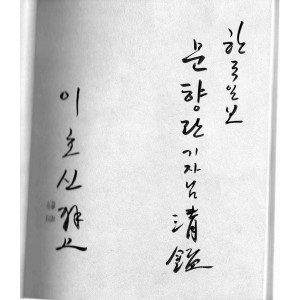 한국일보
문향란 기자님 淸鑑
이호신 拜上